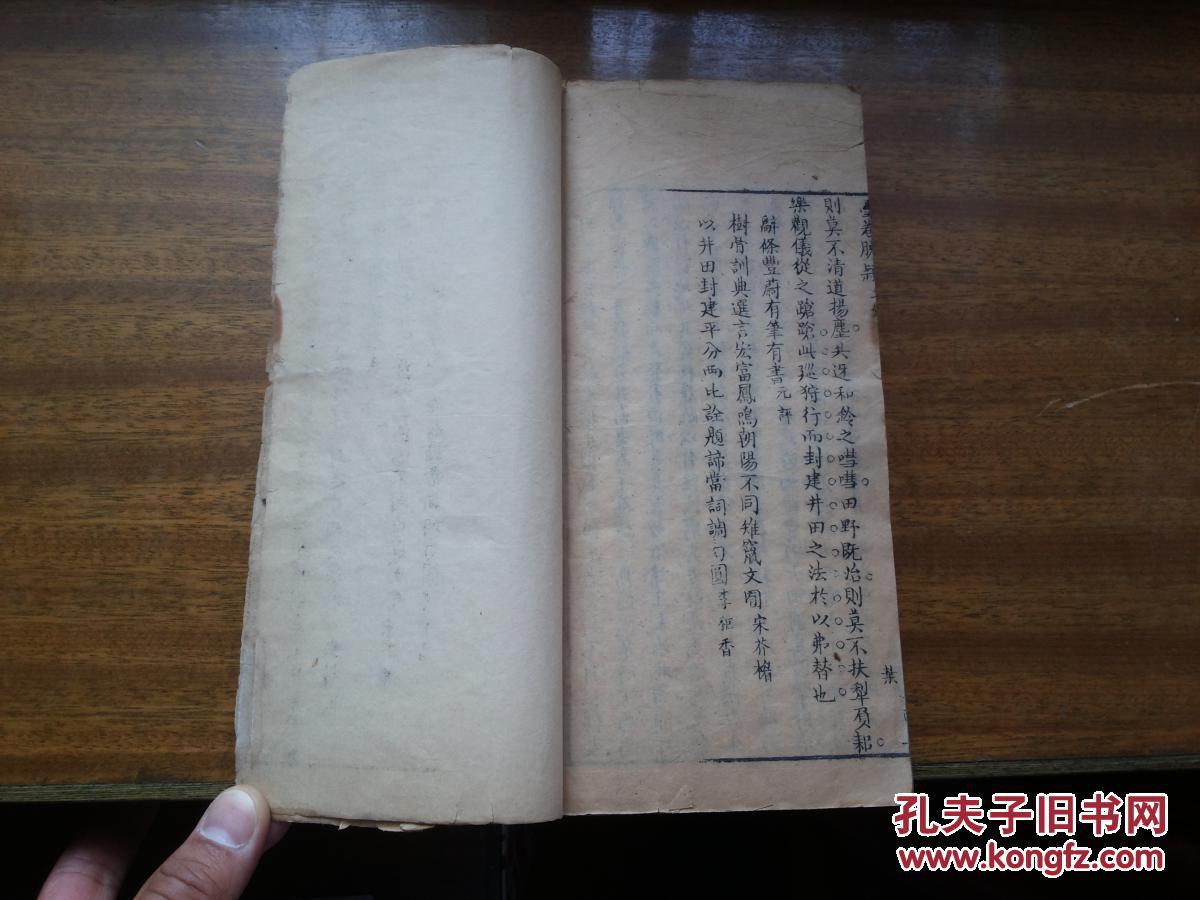 則莫不清道揚塵共迓和鈴之嘒嘒田野既治則莫不扶犁負耜
樂觀儀從之蹌蹌此廵狩行而封建井田之法於以弗替也
辭條豐蔚有筆有書元評
樹骨訓典選言宏富鳳鳴朝陽不同雉竄文囿宋芥楣
以井田封建平分兩比詮題諦當詞調勻圓李
香
葉
孔夫子旧书网
www.kongfz.com